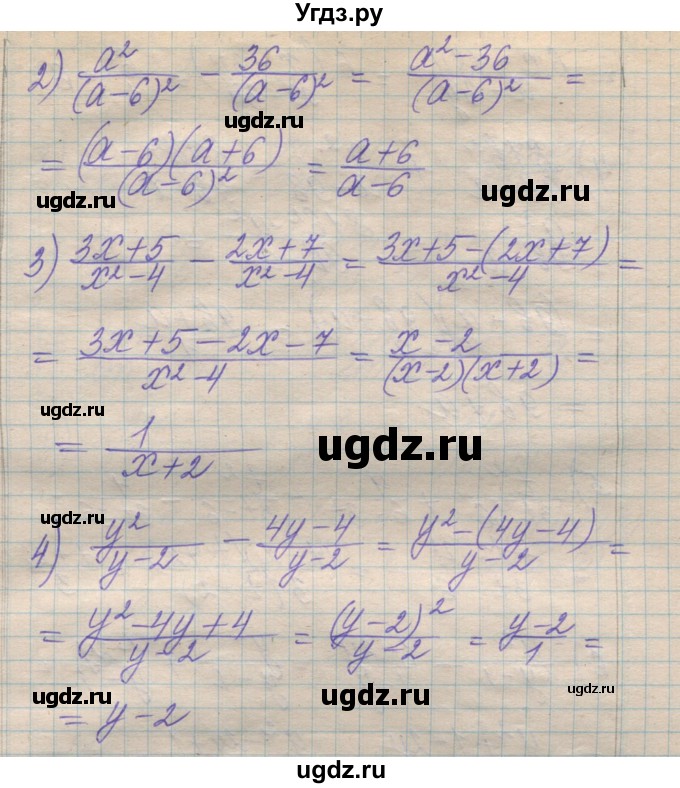 Угдз.ру
2) a²/(a-6)² - 36/(a-6)² = a²-36/(a-6)² =
ugdz.ru
= (a-6)(a+6)/(a-6)² = a+6/a-6
ugdz.ru ugdz.ru
3) 3x+5/x²-4 - 2x+7/x²-4 = 3x+5-(2x+7)/x²-4 =
= 3x+5-2x-7/x²-4 = x-2/(x-2)(x+2) =
ugdz.ru
= 1/x+2
ugdz.ru
ugdz.ru
4) y²/y-2 - 4y-4/y-2 = y²-(4y-4)/y-2 =
= y²-4y+4/y-2 = (y-2)²/y-2 = y-2/1 =
ugdz.ru ugdz.ru ugdz.ru
= y-2
ugdz.ru
ugdz.ru